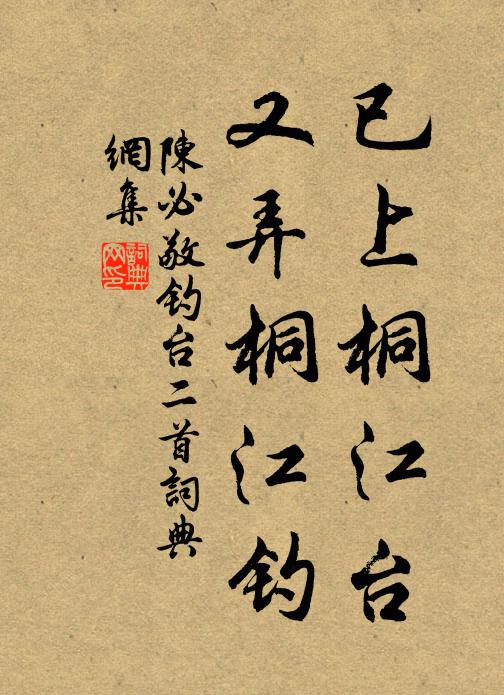 已上桐江台
又弄桐江钓
陳必敬钓台二首詞典
網集
詞典
网印